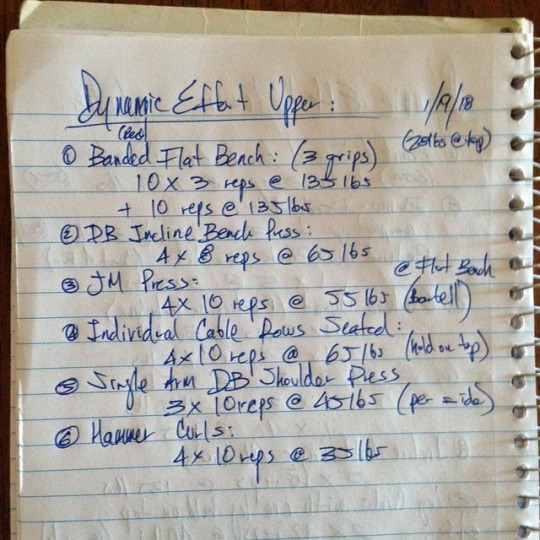 Dynamic Effort Upper: 1/9/18
(Red) (25lbs @ top)
① Banded Flat Bench: (3 grips)
10 x 3 reps @ 135lbs
+ 10 reps @ 135lbs
② DB Incline Bench Press:
4 x 8 reps @ 65lbs
@ Flat Bench
③ JM Press:
4 x 10 reps @ 55lbs (barbell)
④ Individual Cable Rows Seated:
4x10 reps @ 65lbs (hold on top)
⑤ Single Arm DB Shoulder Press
3 x 10reps @ 45lbs (per side)
⑥ Hammer Curls:
4x 10 reps @ 35lbs